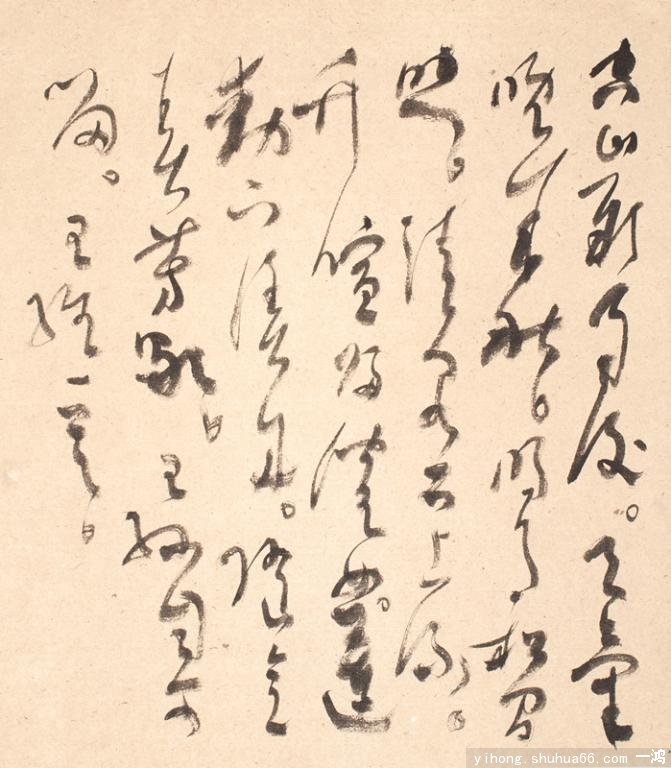 空山新雨後。天氣
晚來秋。明月松間
照。清泉石上流。
竹喧歸浣女。蓮
動下漁舟。隨意
春芳歇。王孫自可
留。王維一首。
yihong.shuhua66.com 一鸿